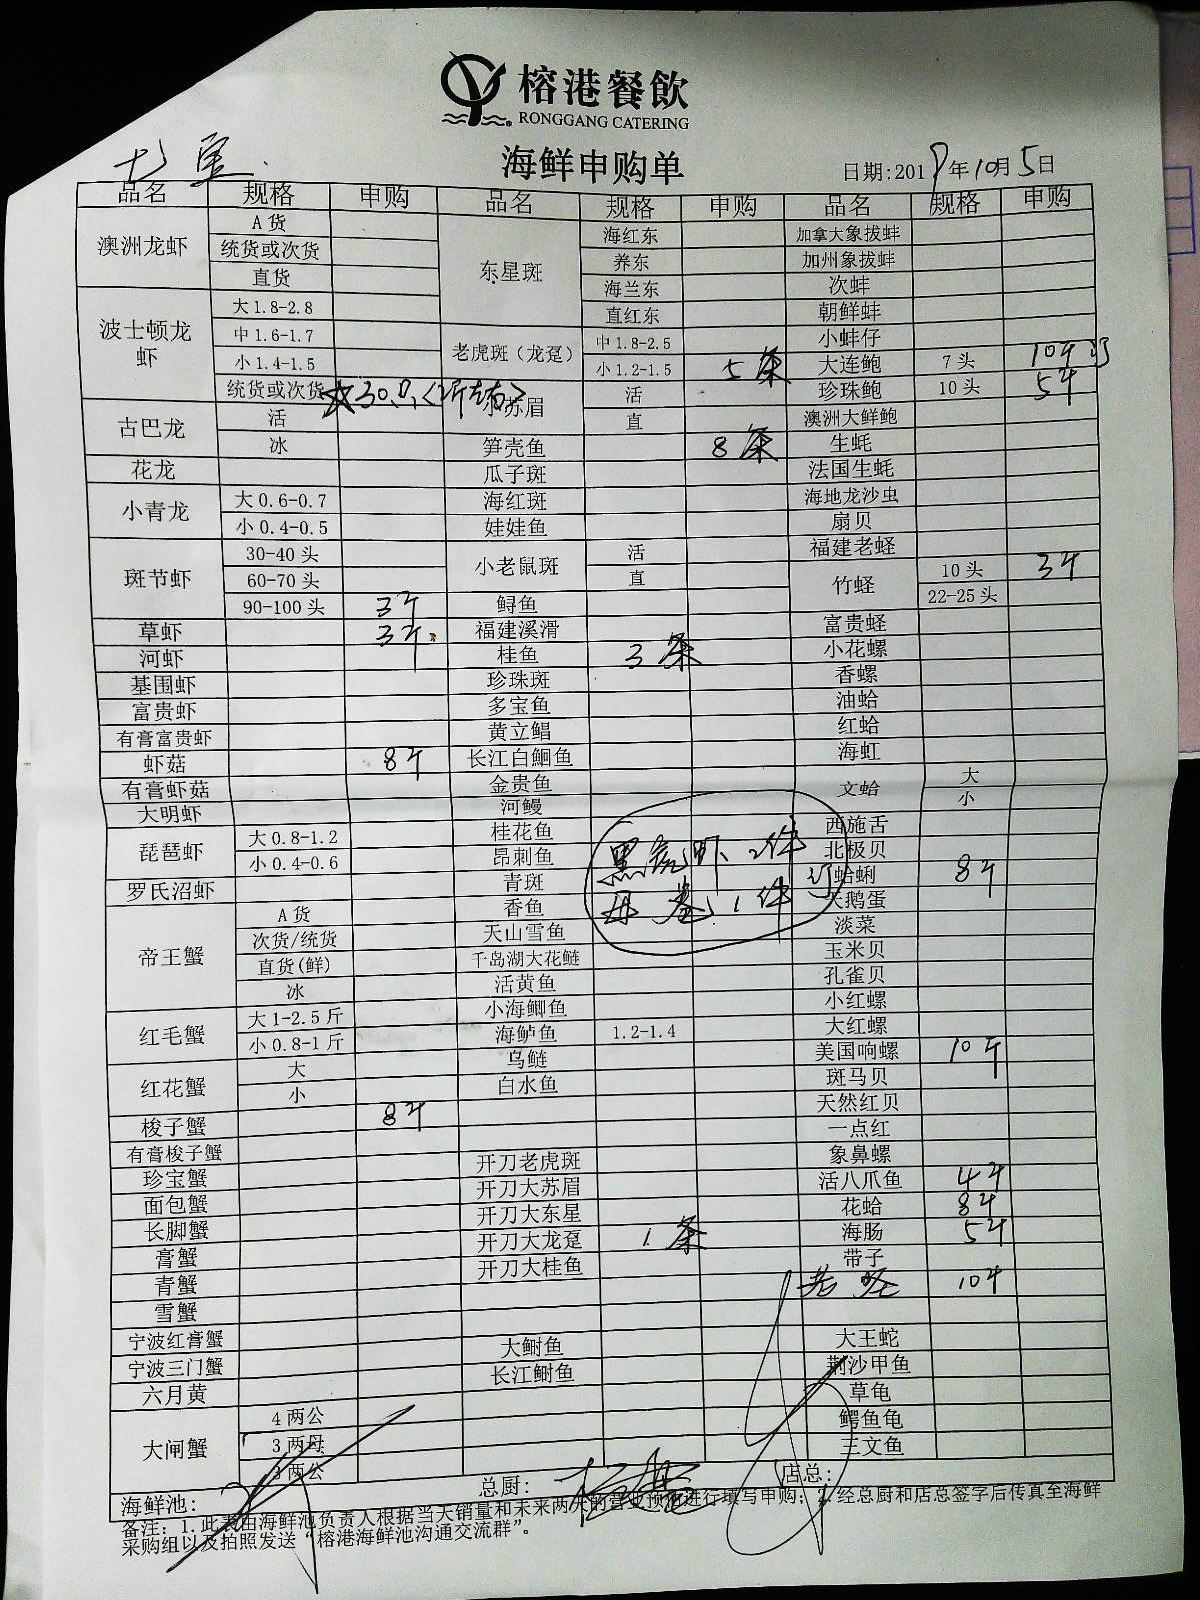 榕港餐飲
RONGGANG CATERING
七宝
海鲜申购单
日期:2019年10月5日
品名 规格 申购 品名 规格 申购 品名 规格 申购
澳洲龙虾 A货
统货或次货
直货
波士顿龙虾 大1.8-2.8
中1.6-1.7
小1.4-1.5
统货或次货 30只(2斤左右)
古巴龙 活
冰
花龙
小青龙 大0.6-0.7
小0.4-0.5
斑节虾 30-40头
60-70头
90-100头 3斤
草虾 3斤
河虾
基围虾
富贵虾
有膏富贵虾
虾菇 8斤
有膏虾菇
大明虾
琵琶虾 大0.8-1.2
小0.4-0.6
罗氏沼虾
帝王蟹 A货
次货/统货
直货(鲜)
冰
红毛蟹 大1-2.5斤
小0.8-1斤
红花蟹 大
小
梭子蟹 8斤
有膏梭子蟹
珍宝蟹
面包蟹
长脚蟹
膏蟹
青蟹
雪蟹
宁波红膏蟹
宁波三门蟹
六月黄
大闸蟹 4两公
3两母
3两公
东星斑 海红东
养东
海兰东
直红东
老虎斑（龙趸） 中1.8-2.5
小1.2-1.5 5条
小苏眉 活
直
笋壳鱼 8条
瓜子斑
海红斑
娃娃鱼
小老鼠斑 活
直
鲟鱼
福建溪滑
桂鱼 3条
珍珠斑
多宝鱼
黄立鲳
长江白鮰鱼
金贵鱼
河鳗
桂花鱼
昂刺鱼
青斑
香鱼
天山雪鱼
千岛湖大花鲢
活黄鱼
小海鲫鱼
海鲈鱼 1.2-1.4
乌鲢
白水鱼
黑虎虾 2件
1件
开刀老虎斑
开刀大苏眉
开刀大东星
开刀大龙趸 1条
开刀大桂鱼
大鲥鱼
长江鲥鱼
加拿大象拔蚌
加州象拔蚌
次蚌
朝鲜蚌
小蚌仔
大连鲍 7头 10斤
珍珠鲍 10头 5斤
澳洲大鲜鲍
生蚝
法国生蚝
海地龙沙虫
扇贝
福建老蛏
竹蛏 10头 3斤
22-25头
富贵蛏
小花螺
香螺
油蛤
红蛤
海虹
文蛤 大
小
西施舌
北极贝
蛤蜊 8斤
天鹅蛋
淡菜
玉米贝
孔雀贝
小红螺
大红螺
美国响螺 10斤
斑马贝
天然红贝
一点红
象鼻螺
活八爪鱼 4斤
花蛤 8斤
海肠 5斤
带子
10斤
大王蛇
荆沙甲鱼
草龟
鳄鱼龟
三文鱼
海鲜池: 总厨: 店总:
备注: 1.此表由海鲜池负责人根据当天销量和未来两天的营业预估进行填写申购; 2.经总厨和店总签字后传真至海鲜
采购组以及拍照发送“榕港海鲜池沟通交流群”。